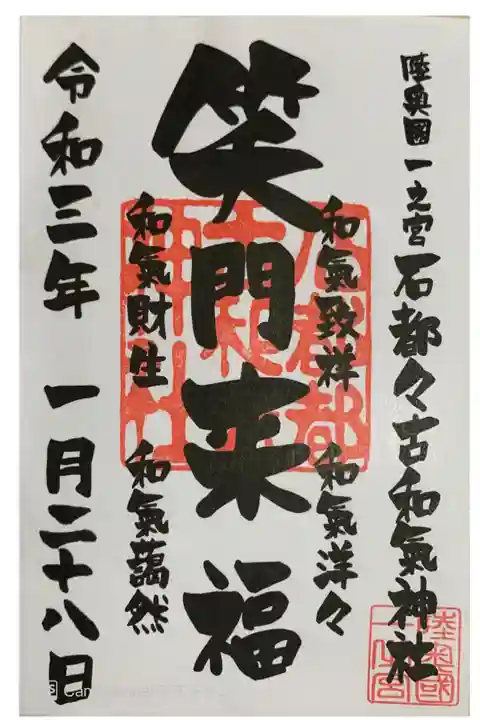 陸奥國一之宮石都々古和氣神社
和氣致祥 和氣洋々
笑門来福
和氣財生 和氣藹然
令和三年 一月二十八日
陸奥國
一之宮